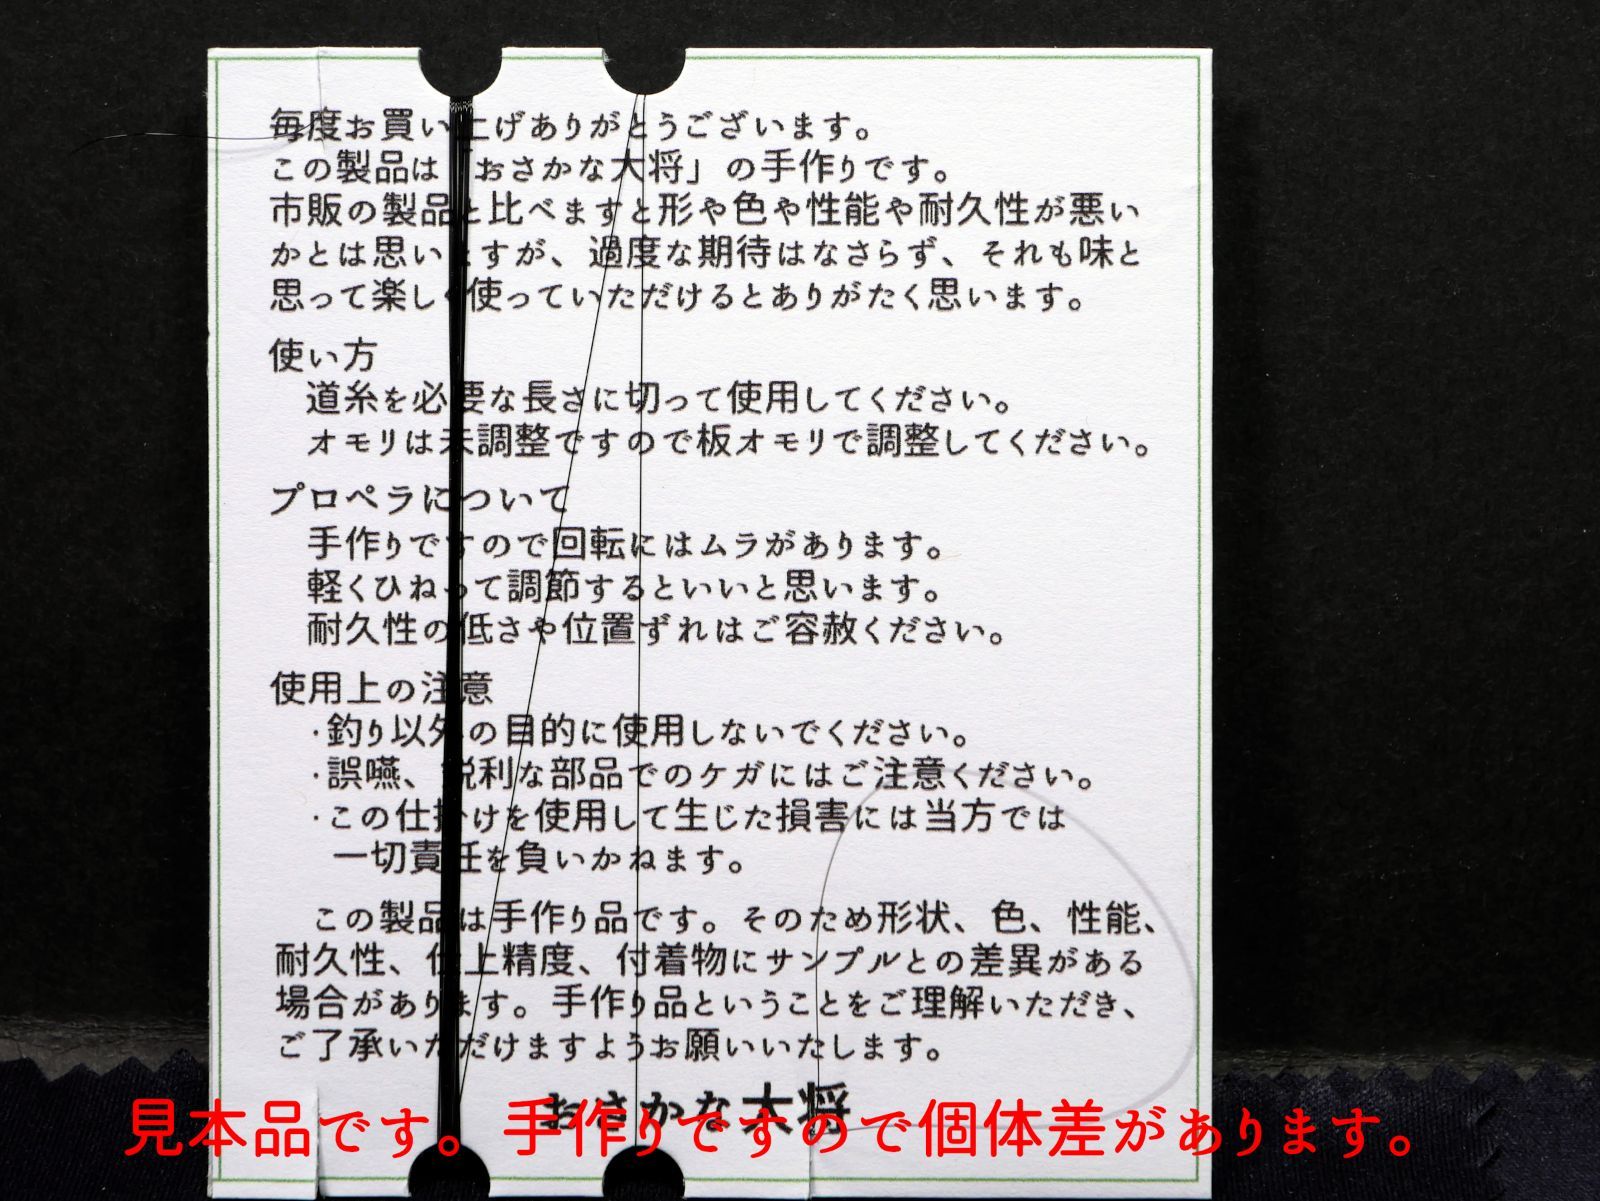 毎度お買い上げありがとうございます。
この製品は「おさかな大将」の手作りです。
市販の製品と比べますと形や色や性能や耐久性が悪い
かとは思いますが、過度な期待はなさらず、それも味と
思って楽しく使っていただけるとありがたく思います。
使い方
道糸を必要な長さに切って使用してください。
オモリは未調整ですので板オモリで調整してください。
プロペラについて
手作りですので回転にはムラがあります。
軽くひねって調節するといいと思います。
耐久性の低さや位置ずれはご容赦ください。
使用上の注意
・釣り以外の目的に使用しないでください。
・誤嚥、鋭利な部品でのケガにはご注意ください。
・この仕掛けを使用して生じた損害には当方では
一切責任を負いかねます。
この製品は手作り品です。そのため形状、色、性能、
耐久性、仕上精度、付着物にサンプルとの差異がある
場合があります。手作り品ということをご理解いただき、
ご了承いただけますようお願いいたします。
おさかな大将
見本品です。手作りですので個体差があります。